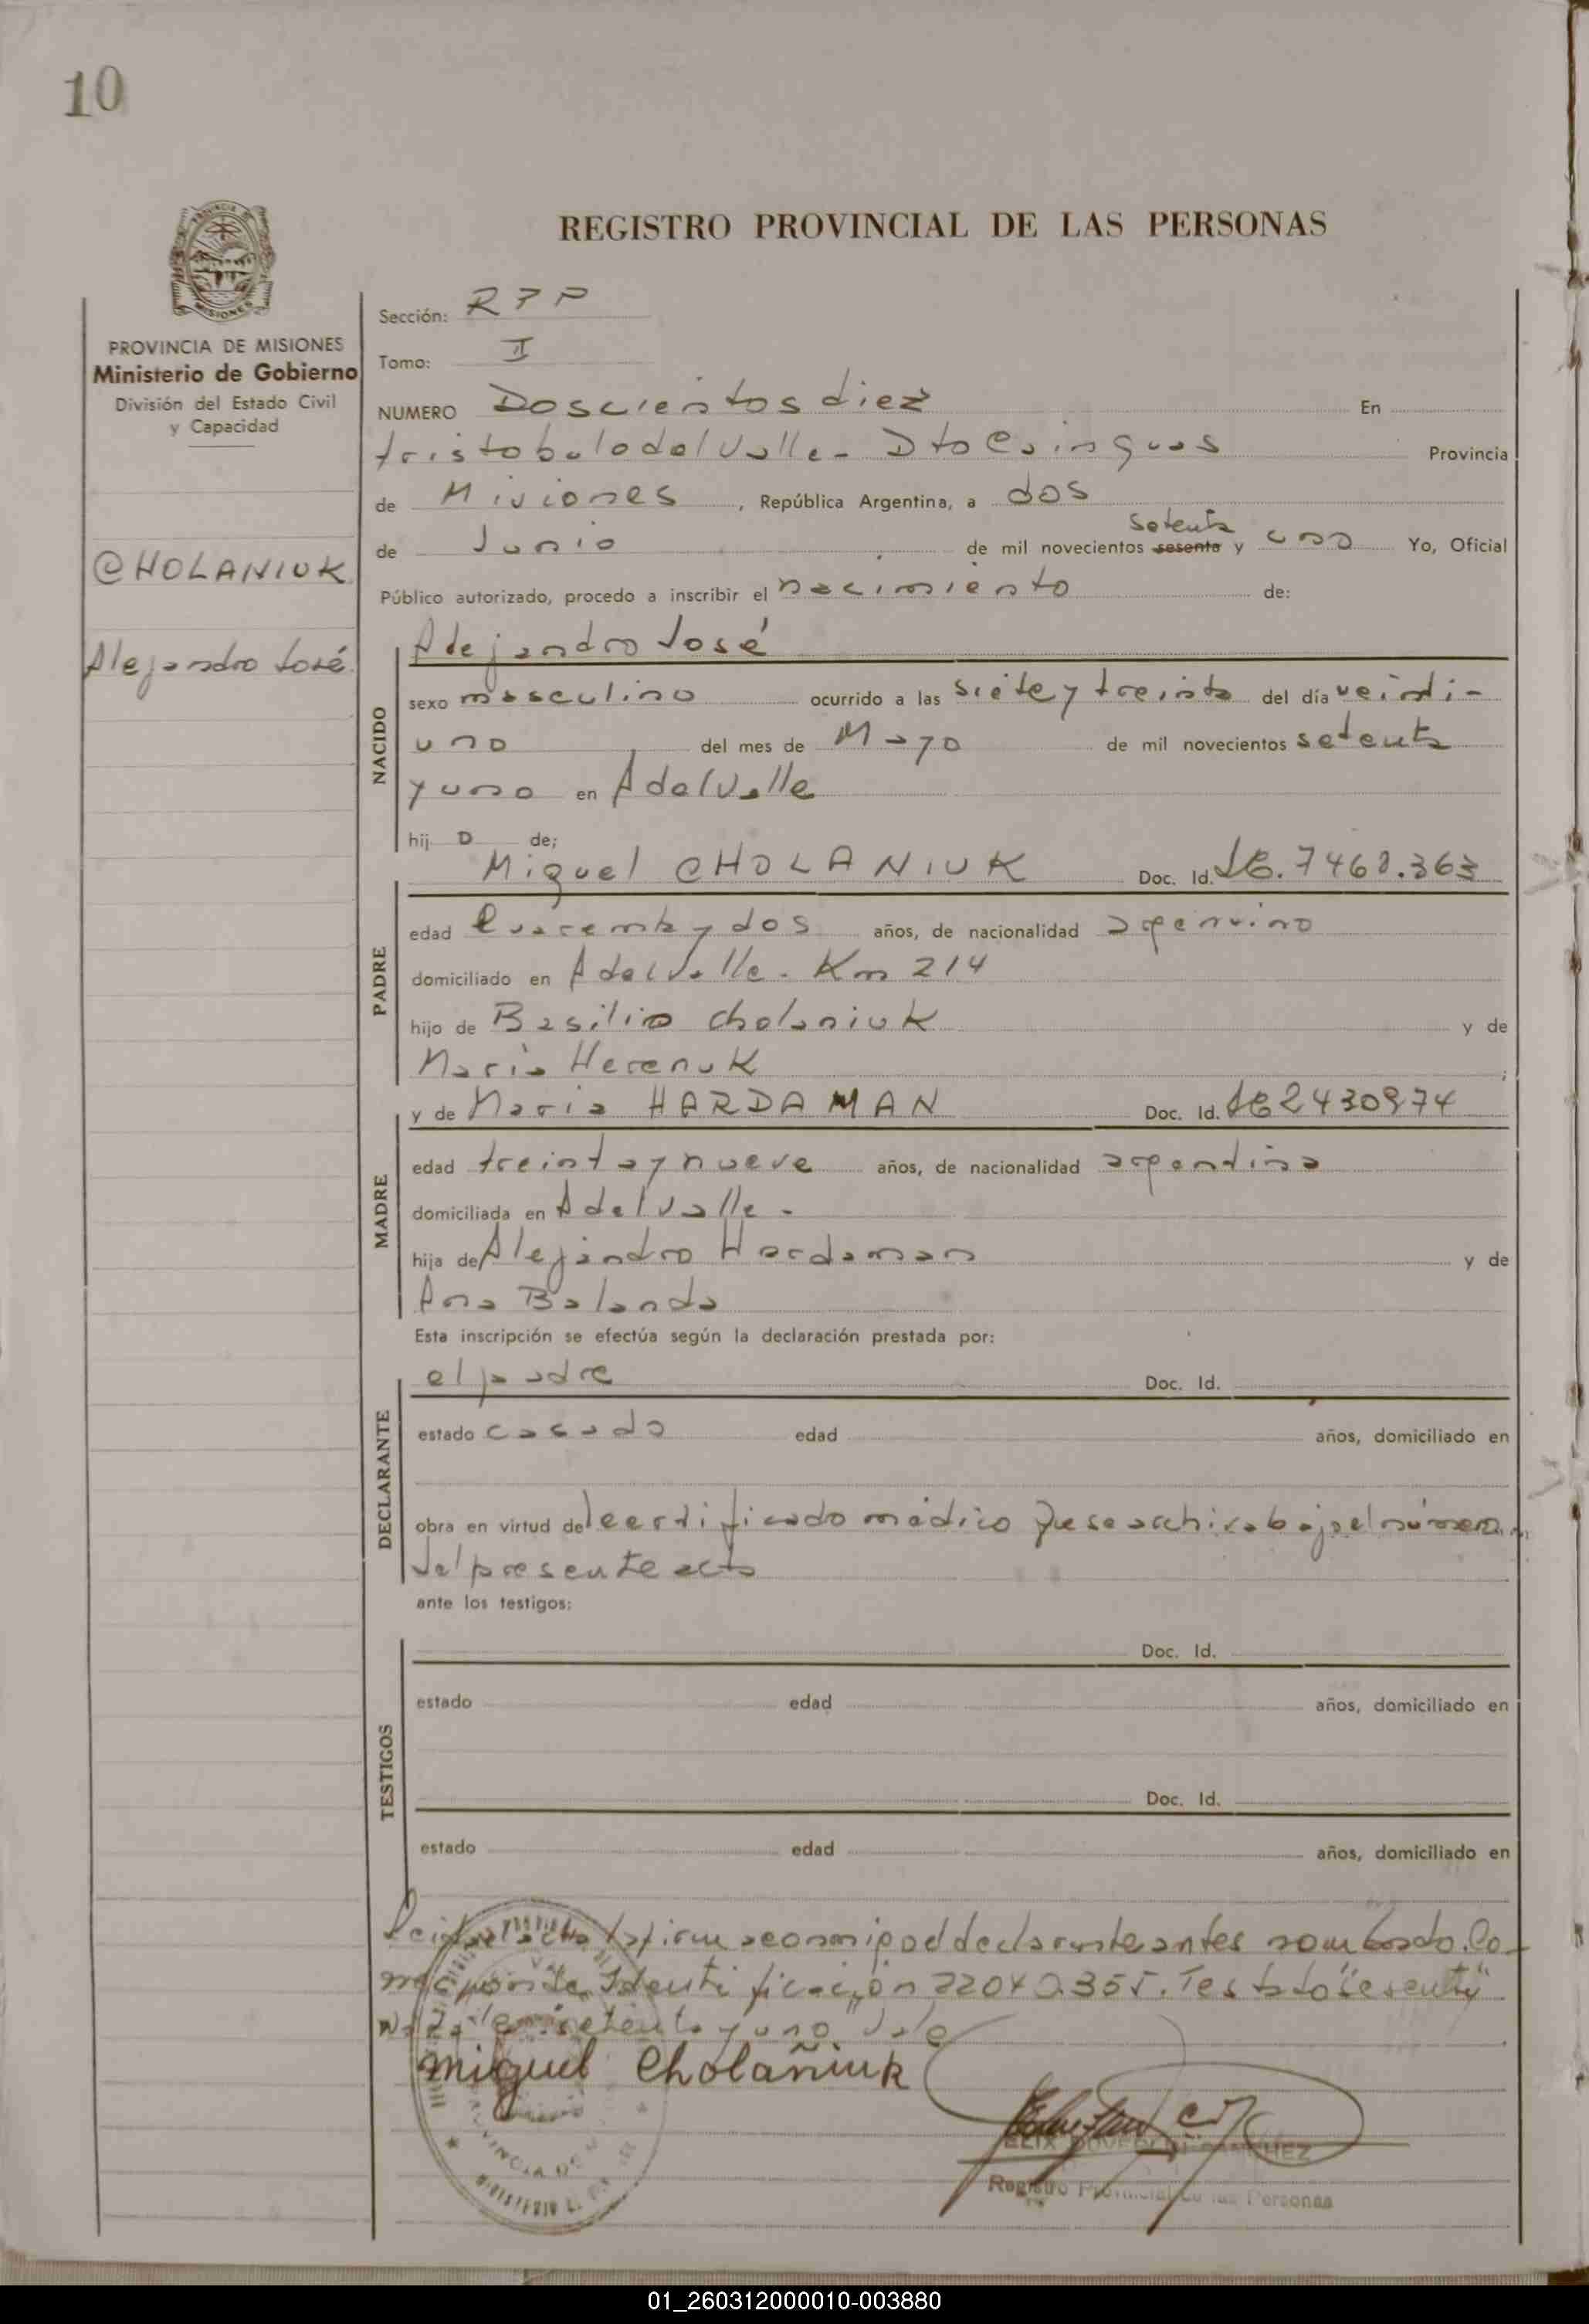 10
REGISTRO PROVINCIAL DE LAS PERSONAS
PROVINCIA DE MISIONES
Ministerio de Gobierno
División del Estado Civil
y Capacidad
CHOLANIUK
Alejandro José
Sección: R P P
Tomo: II
NUMERO Doscientos diez En
Aristobulo del Valle - Dto Cainguas Provincia
de Misiones, República Argentina, a dos
setenta
de Junio de mil novecientos sesenta y uno Yo, Oficial
Público autorizado, procedo a inscribir el nacimiento de:
NACIDO
Alejandro José
sexo masculino ocurrido a las siete y treinta del día veinti-
uno del mes de Mayo de mil novecientos setenta
y uno en A del Valle
hij o de;
PADRE
Miguel CHOLANIUK Doc. Id. LE. 7468.363
edad cuarenta y dos años, de nacionalidad argentino
domiciliado en A del Valle - Km 214
hijo de Basilio Cholaniuk y de
Maria Herenuk ;
MADRE
y de Maria HARDAMAN Doc. Id. LC 2430974
edad treinta y nueve años, de nacionalidad argentina
domiciliada en A del Valle -
hija de Alejandro Hardaman y de
Ana Balanda
Esta inscripción se efectúa según la declaración prestada por:
DECLARANTE
el padre Doc. Id.
estado casado edad años, domiciliado en
obra en virtud del certificado médico que se archiva bajo el número
del presente acta
ante los testigos:
TESTIGOS
Doc. Id.
estado edad años, domiciliado en
Doc. Id.
estado edad años, domiciliado en
Leida el acta la firma conmigo el declarante antes nombrado. Co-
rresponde Identificación 22040.355. Testado "sesenta"
setenta y uno vale
miguel Cholañiuk
Registro Provincial de las Personas
01_260312000010-003880